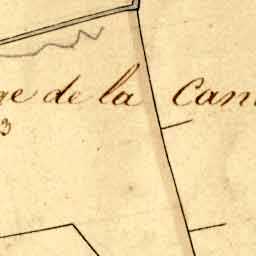 de la Can
3